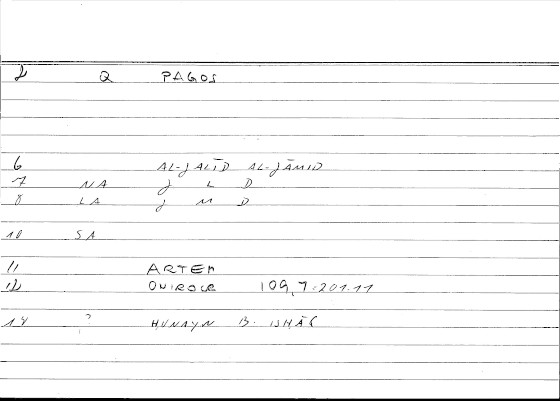 2 Q PAGOS
6 AL-JALĪD AL-JĀMID
7 NA J L D
8 LA J M D
10 SA
11 ARTEM
12 ONIROCR 109,7-201.11
14 ? HUNAYN B. ISHĀQ